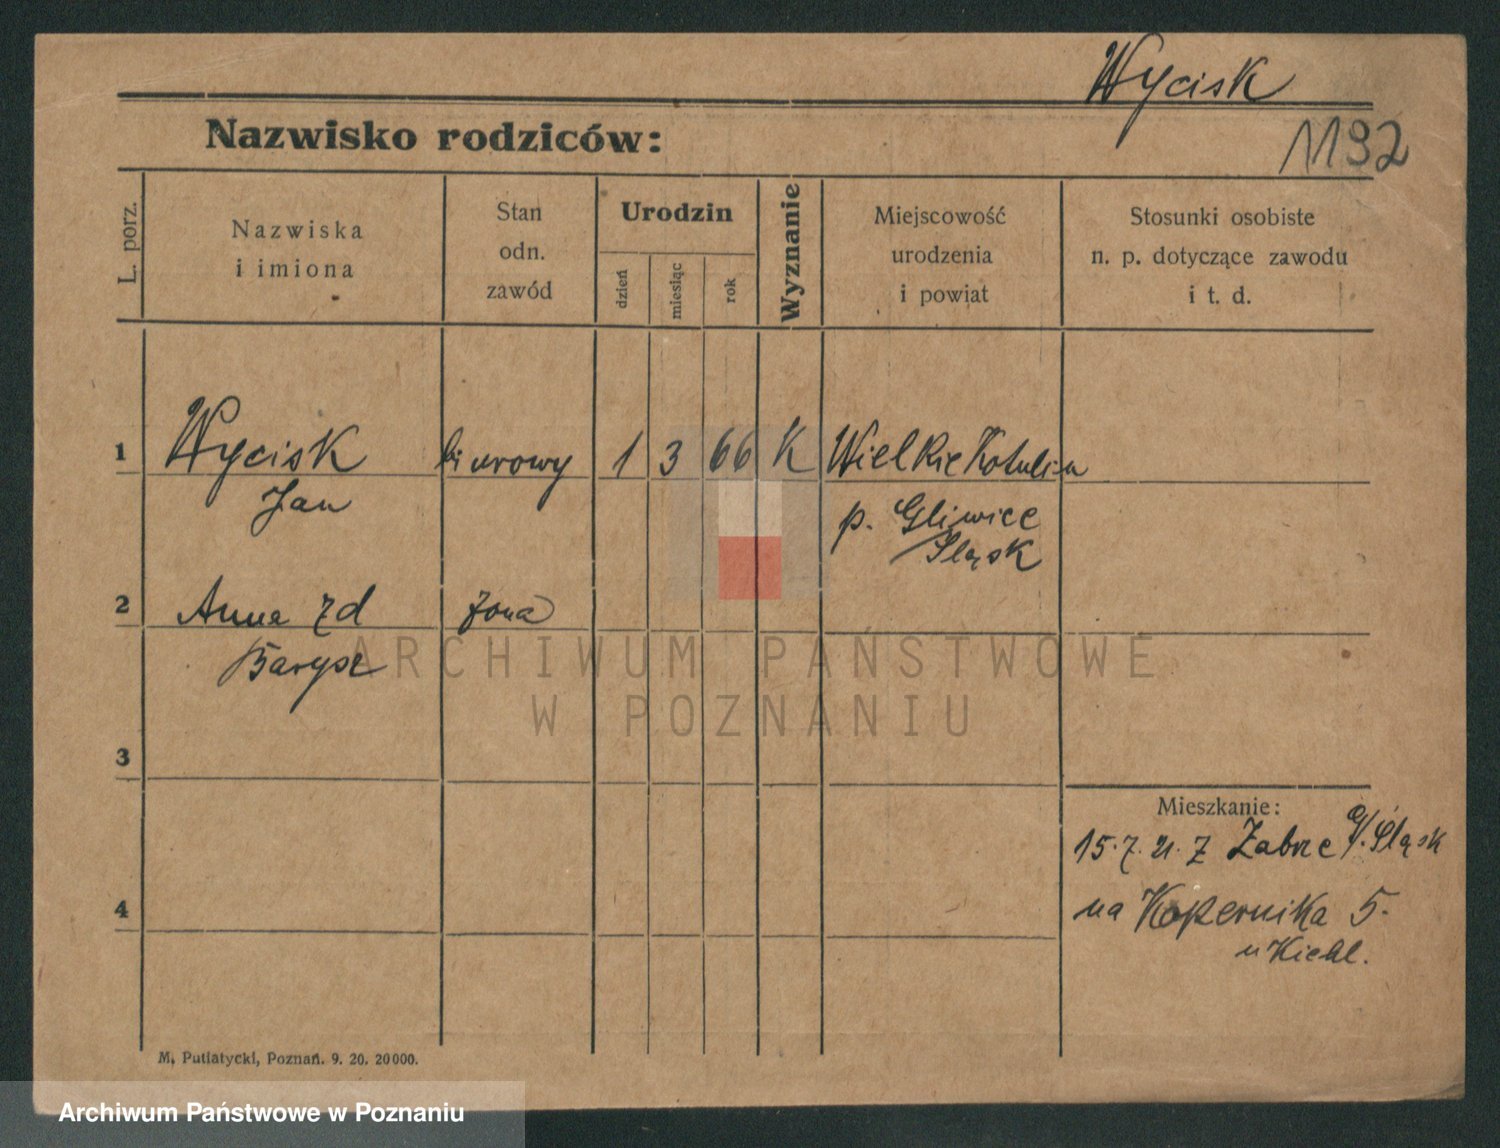 Wycisk
Nazwisko rodziców:
1192
L. porz.
Nazwiska
i imiona
Stan
odn.
zawód
Urodzin
dzień
miesiąc
rok
Wyznanie
Miejscowość
urodzenia
i powiat
Stosunki osobiste
n. p. dotyczące zawodu
i t. d.
1 Wycisk biurowy 1 3 66 K Wielkie Kotulin
Jan p. Gliwice
Śląsk
2 Anna zd żona
Barysz
ARCHIWUM PAŃSTWOWE
W POZNANIU
3
Mieszkanie:
15.7.21. z Zabrze G/Śląsk
4 na Kopernika 5.
u Kiehl.
M. Putiatycki, Poznań. 9. 20. 20000.
Archiwum Państwowe w Poznaniu